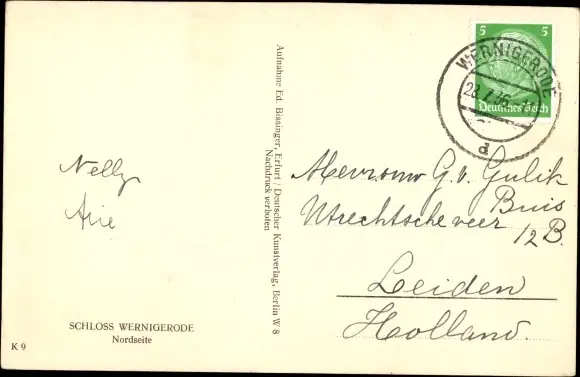 Nelly
Arie
SCHLOSS WERNIGERODE
Nordseite
K 9
Aufnahme Ed. Bissinger, Erfurt / Deutscher Kunstverlag, Berlin W 8
Nachdruck verboten
5 5
Deutsches Reich
WERNIGERODE
d
Mevrouw G. v. Gulik
Buis
Utrechtsche veer
12 B.
Leiden
Holland.